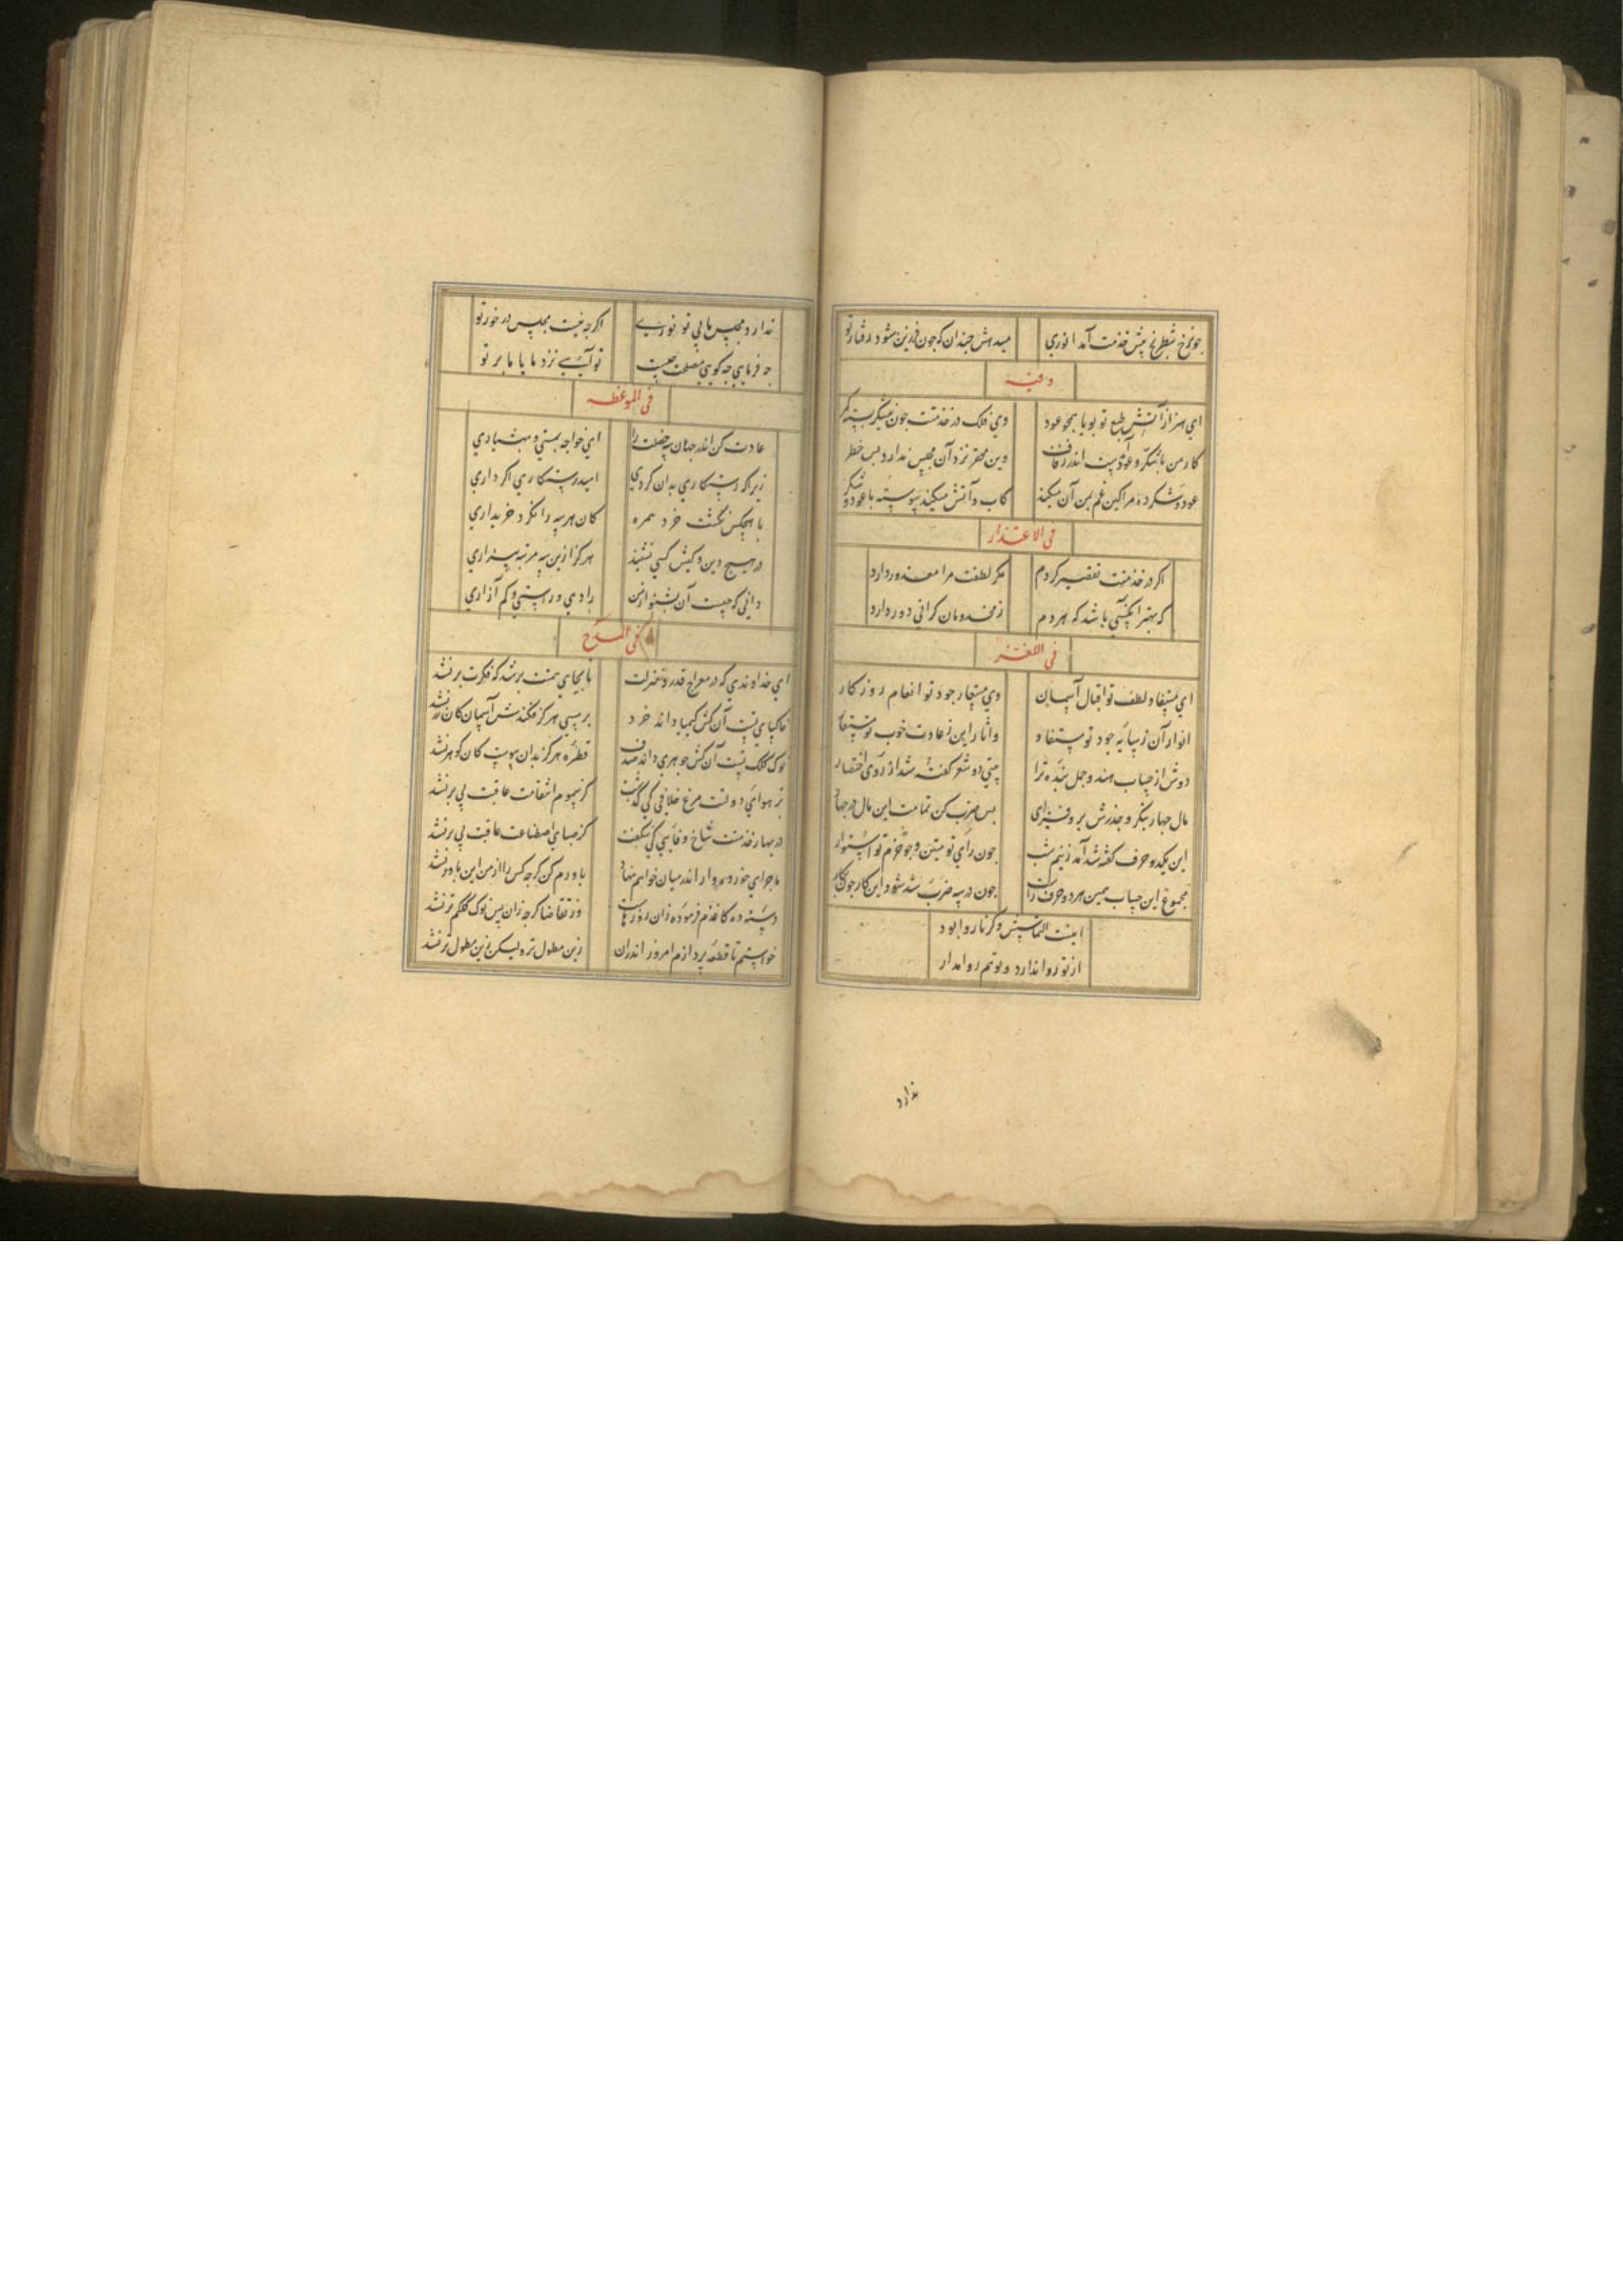 جو رخ شطرنج پیش خدمت آمد انوری
میدهش جندان که جون فرزین شود رفتار تو
و فیه
ای هنر از آتش طبع تو بویا همجو عود
وی فلک در خدمتت جون نیشکر بسته کمر
کار من با شکر و عودیست اندر
وین محقر نزد آن مجلس ندارد بس خطر
عود و شکر ده مرا کین غم بمن آن میکند
کاب و آتش میکند پیوسته با عود و شکر
فی الاعتذار
اکر در خدمتت تقصیر کردم
مکر لطفت مرا معذور دارد
که بهتر آنکسی باشد که هر دم
ز مخدومان کرانی دور دارد
فی اللغز
ای مستفاد لطف تو اقبال آسمان
وی مستعار جود تو انعام روزکار
انوار آن ز سایه جود تو مستفاد
واثار این ز عادت خوب تو مستعار
دوش از حساب هند و جمل بنده ترا
بیتی دو شعر کفته شد از روی اختصار
مال جهار بنکر و جذرش برو فزای
بس ضرب کن تمامت این مال در جهار
این یکدو حرف کفته شد آمد ز نیم شب
جون رای تو متین و جو حزم تو استوار
مجموع این حساب همین هر دو حرف راست
جون در سه ضرب شد شود این کار جون نکار
اینست التماسش و کر ناروا بود
از تو روا ندارد و تو هم روا مدار
ندارد
ندارد مجلس ما بی تو نوری
اکرجه نیست مجلس در خور تو
جه فرمایی جه کویی مصلحت جیست
تو آیی نزد ما یا ما بر تو
فی الموعظه
عادت کن اندر جهان سه خصلت را
ای خواجه بمستی و بهشیاری
زیرا که رستکاری بدان کردی
امید رستکاری اکر داری
با هیجکس نکشت خرد همره
کان هر سه را نکرد خریداری
در هیج دین و کیش کسی نشنید
هرکز ازین سه مرتبه بیزاری
دانی که جیست آن بشنو از من
رادی و راستی و کم آزاری
فی المدح
ای خداوندی که در معراج قدر و منزلت
تا بجایی همتت برشد که فکرت برنشد
خاکپای تست آن کش کیمیا داند خرد
بر مسی هرکز فکندش آسمان کان زر نشد
نوک کلک تست آن کش جوهری داند صدف
قطره هرکز بدان پیوست کان کوهر نشد
در هوای دولتت مرغ خلافی کی کذشت
کز سموم انتقامت عاقبت بی پر نشد
در بهار خدمتت شاخ وفایی کی شکفت
کز صبای اصطناعت عاقبت پی بر نشد
ماجرای خورده وار اندر میان خواهم نهاد
باورم کن کرجه کس را از من این باور نشد
دسته ده کاغذم فرموده زان روزهاست
وز تقاضا کرجه زان پس نوک کلکم تر نشد
خواستم تا قطعه پردازم امروز اندران
زین مطول تر ولیکن زین مطول تر نشد